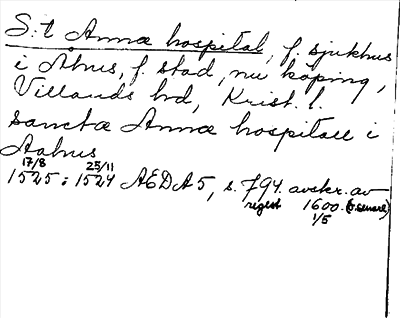 S:t Annæ hospital, f. sjukhus
i Åhus, f. stad, nu köping,
Villands hd, Krist. l.
sanctæ Annæ hospitall i
Aahus
17/8 25/11
1525: 1524 AEDA 5, s. 794. avskr. av
regest 1600. (o. senare)
1/5